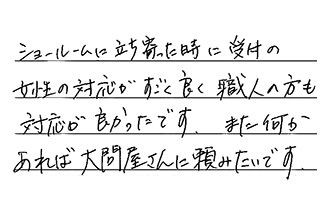 ショールームに立ち寄った時に受付の
女性の対応がすごく良く職人の方も
対応が良かったです。また何か
あれば大問屋さんに頼みたいです。